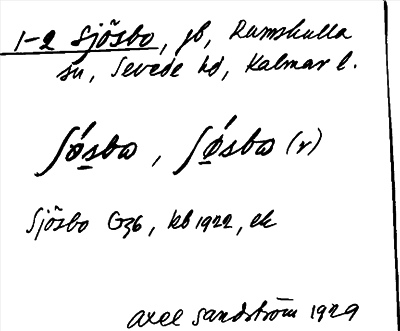 1-2 Sjösbo, gb, Rumskulla
sn, Sevede hd, Kalmar l.
ʃǿsba, ʃǿsba (r)
Sjösbo G36, kb 1922, ek
Axel Sandström 1929